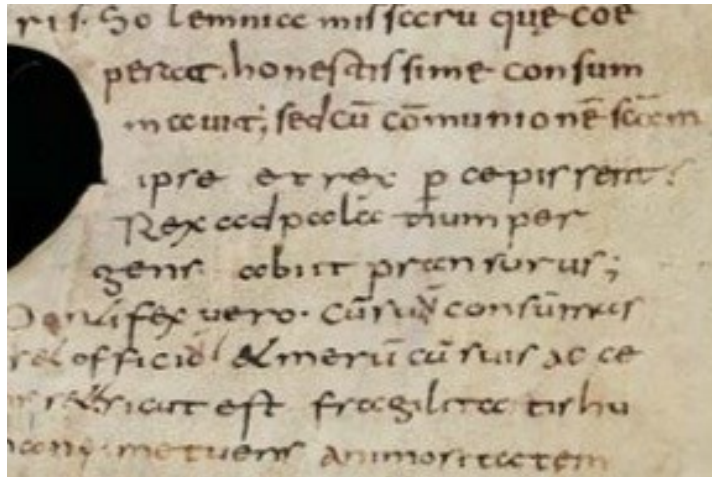 ris. Solemnia missaru que coe
perat. honestissime consum
mauit; sed cū cōmunionē scām
ipse et rex p̄cepissent.
Rex ad palatium per
gens abiit pransurus;
Pontifex vero. cū
officio & cū suis ac ce
est fragilitatis hu
metuens animositatem